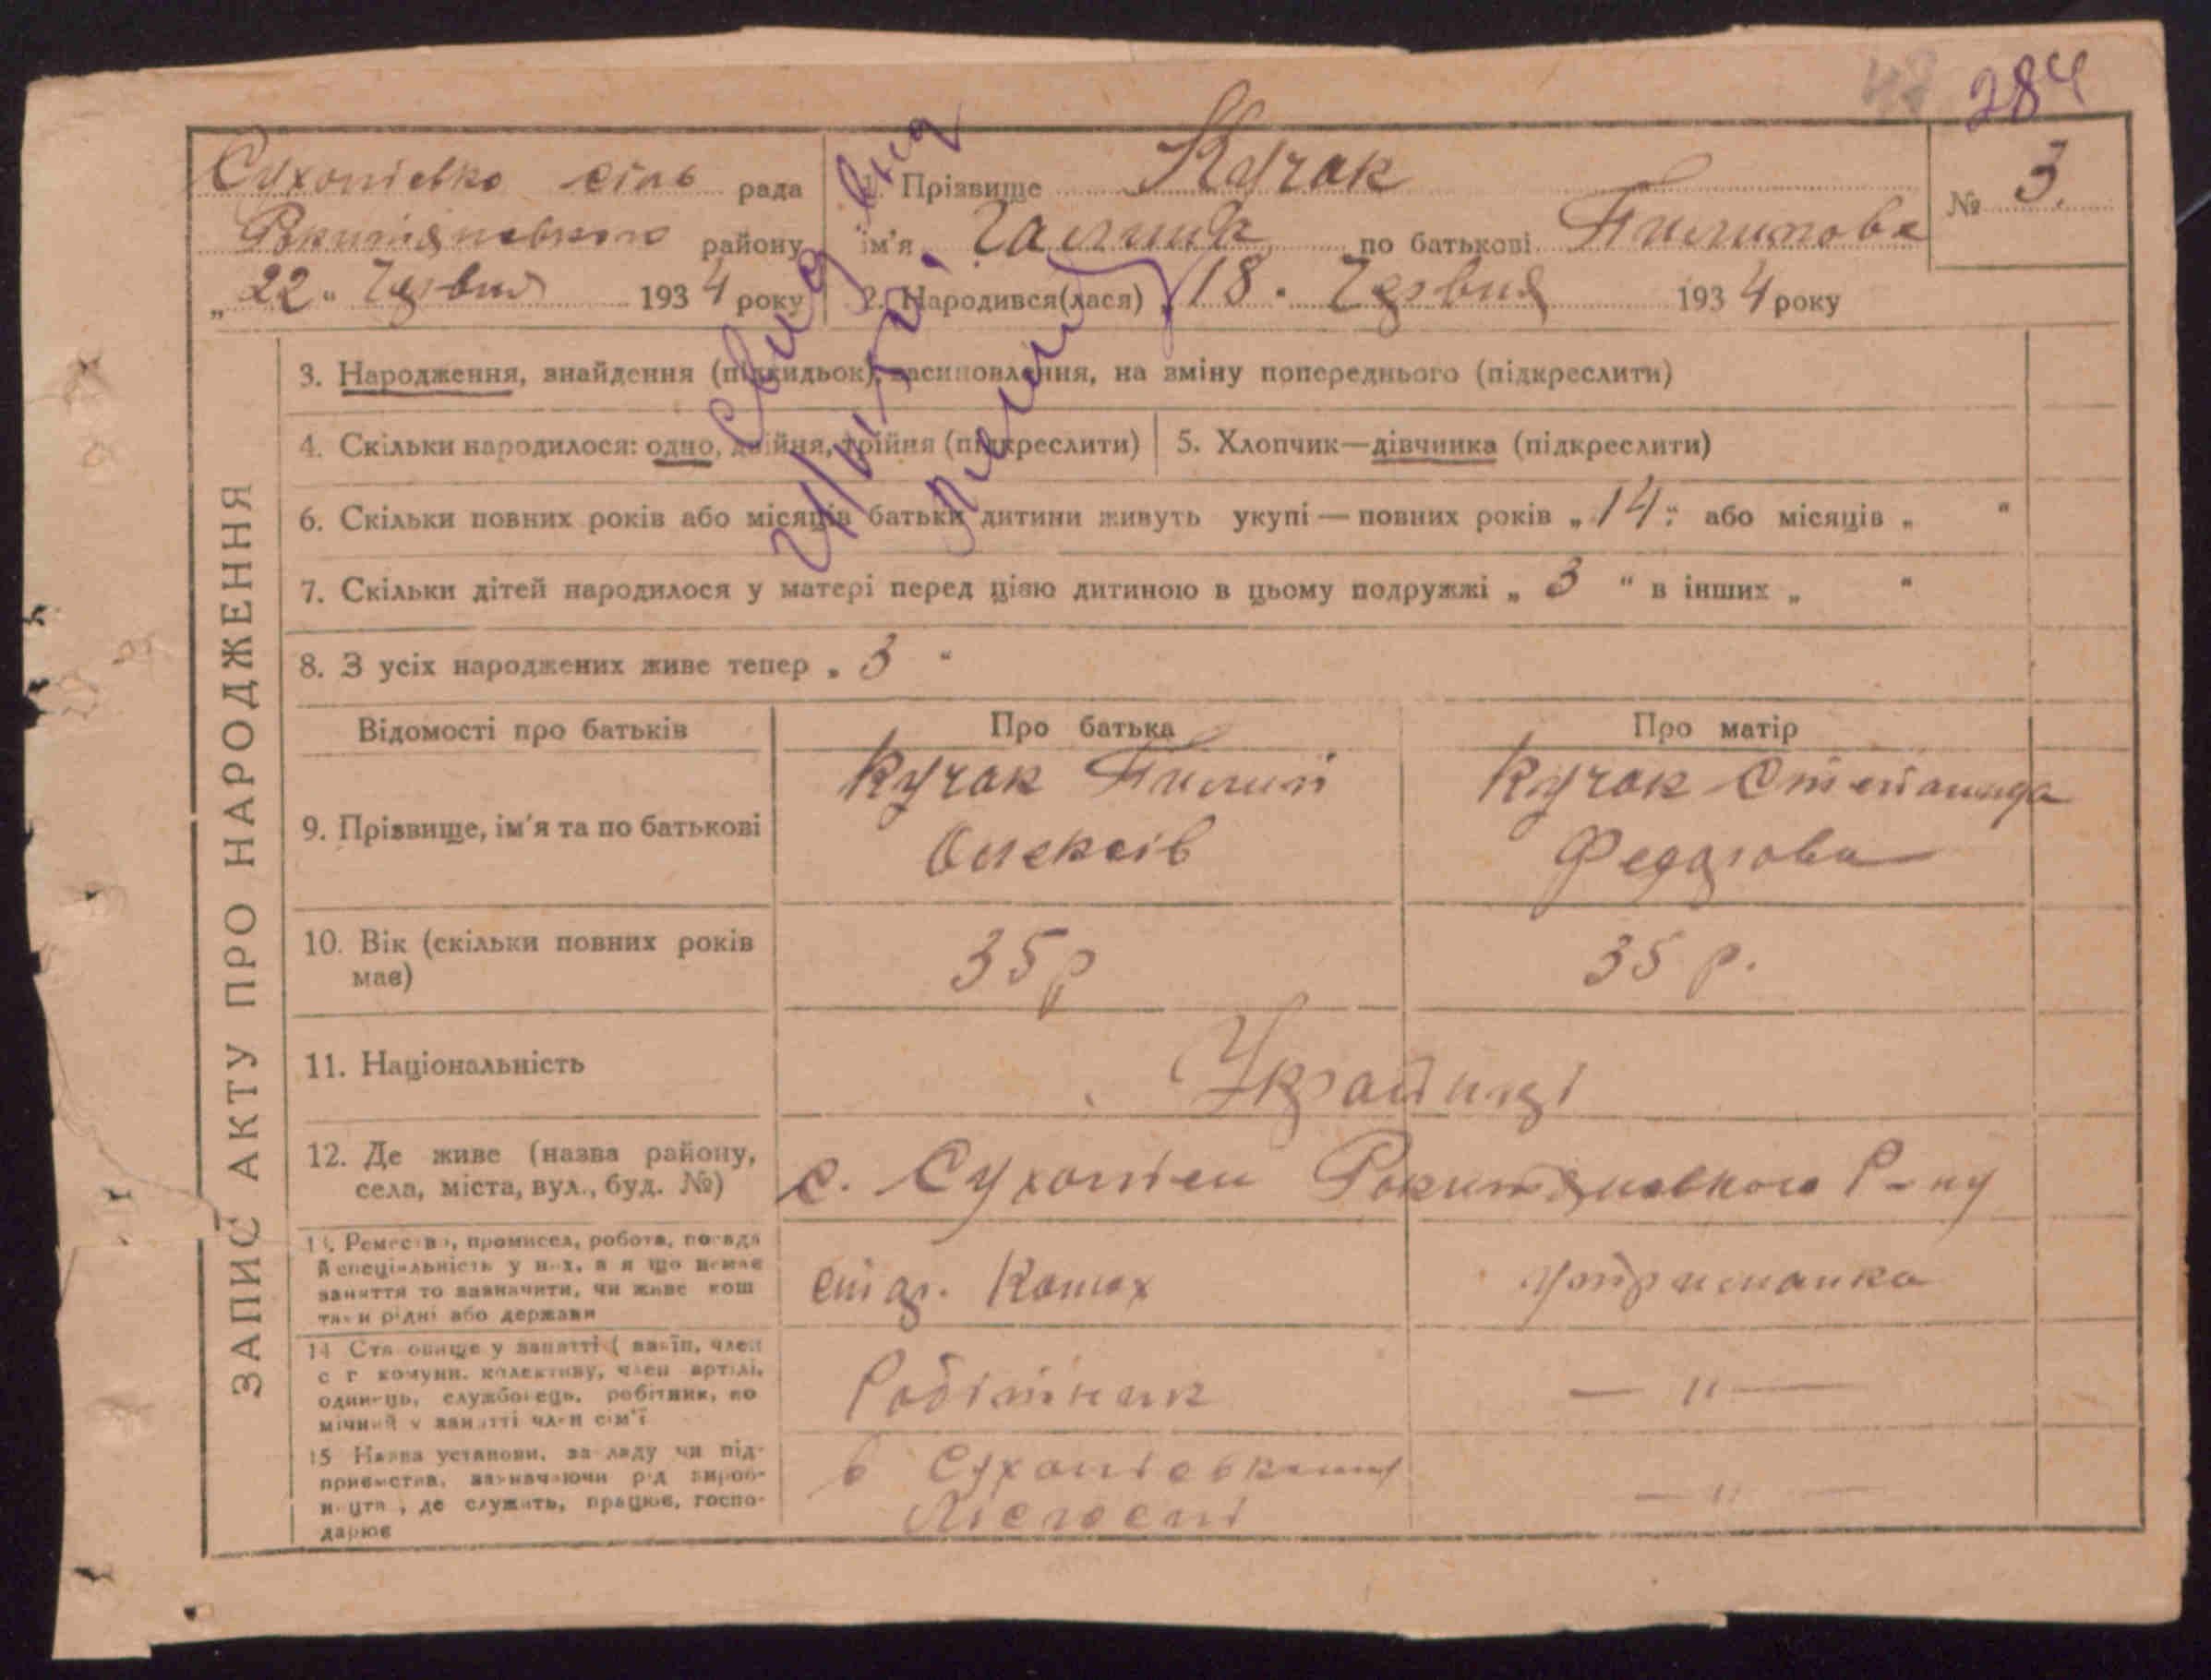 284
Сухоліська сіль рада
Рокитянського району
„22“ Червня 1934 року
1. Прізвище Кучак
ім'я Галина по батькові Пилипова
№ 3.
2. Народився(лася) „18“ Червня 1934 року
Свид вид
ЗАПИС АКТУ ПРО НАРОДЖЕННЯ
3. Народження, знайдення (підкидьок), засиновлення, на зміну попереднього (підкреслити)
4. Скільки народилося: одно, двійня, трійня (підкреслити)
5. Хлопчик—дівчинка (підкреслити)
6. Скільки повних років або місяців батьки дитини живуть укупі — повних років „14“ або місяців „ “
7. Скільки дітей народилося у матері перед цією дитиною в цьому подружжі „3“ в інших „ “
8. З усіх народжених живе тепер „3“
Відомості про батьків Про батька Про матір
9. Прізвище, ім'я та по батькові
Кучак Пилип
Олексів
Кучак Степанида
Федорова
10. Вік (скільки повних років
має)
35 р
35 р.
11. Національність
Українці
12. Де живе (назва району,
села, міста, вул., буд. №)
с. Сухоліси Рокитянського Р-ну
13. Ремество, промисел, робота, посада
й спеціяльність у них, а якщо немає
заняття то зазначити, чи живе кош
тами рідні або держави
стар. Конюх
утриманка
14 Становище у занятті (хазяїн, член
с г комуни, колективу, член артілі,
одинець, службовець, робітник, по
мічний у занятті член сім'ї
Робітник
— " —
15 Назва установи, закладу чи під-
приємства, зазначаючи рід вироб-
ництв, де служить, працює, госпо-
дарює
в Сухоліському
Лісгоспі
— " —